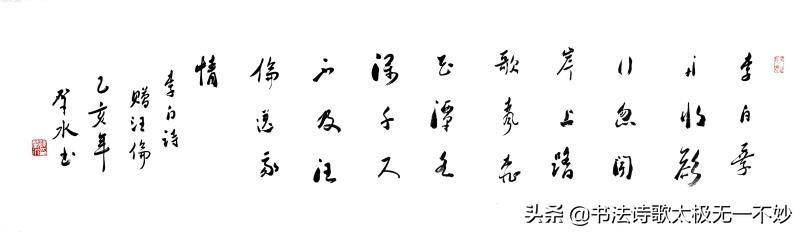 李白乘
舟将欲
行忽闻
岸上踏
歌声桃
花潭水
深千尺
不及汪
倫送我
情
李白诗
赠汪倫
乙亥年
水书
头条 @书法诗歌太极无一不妙